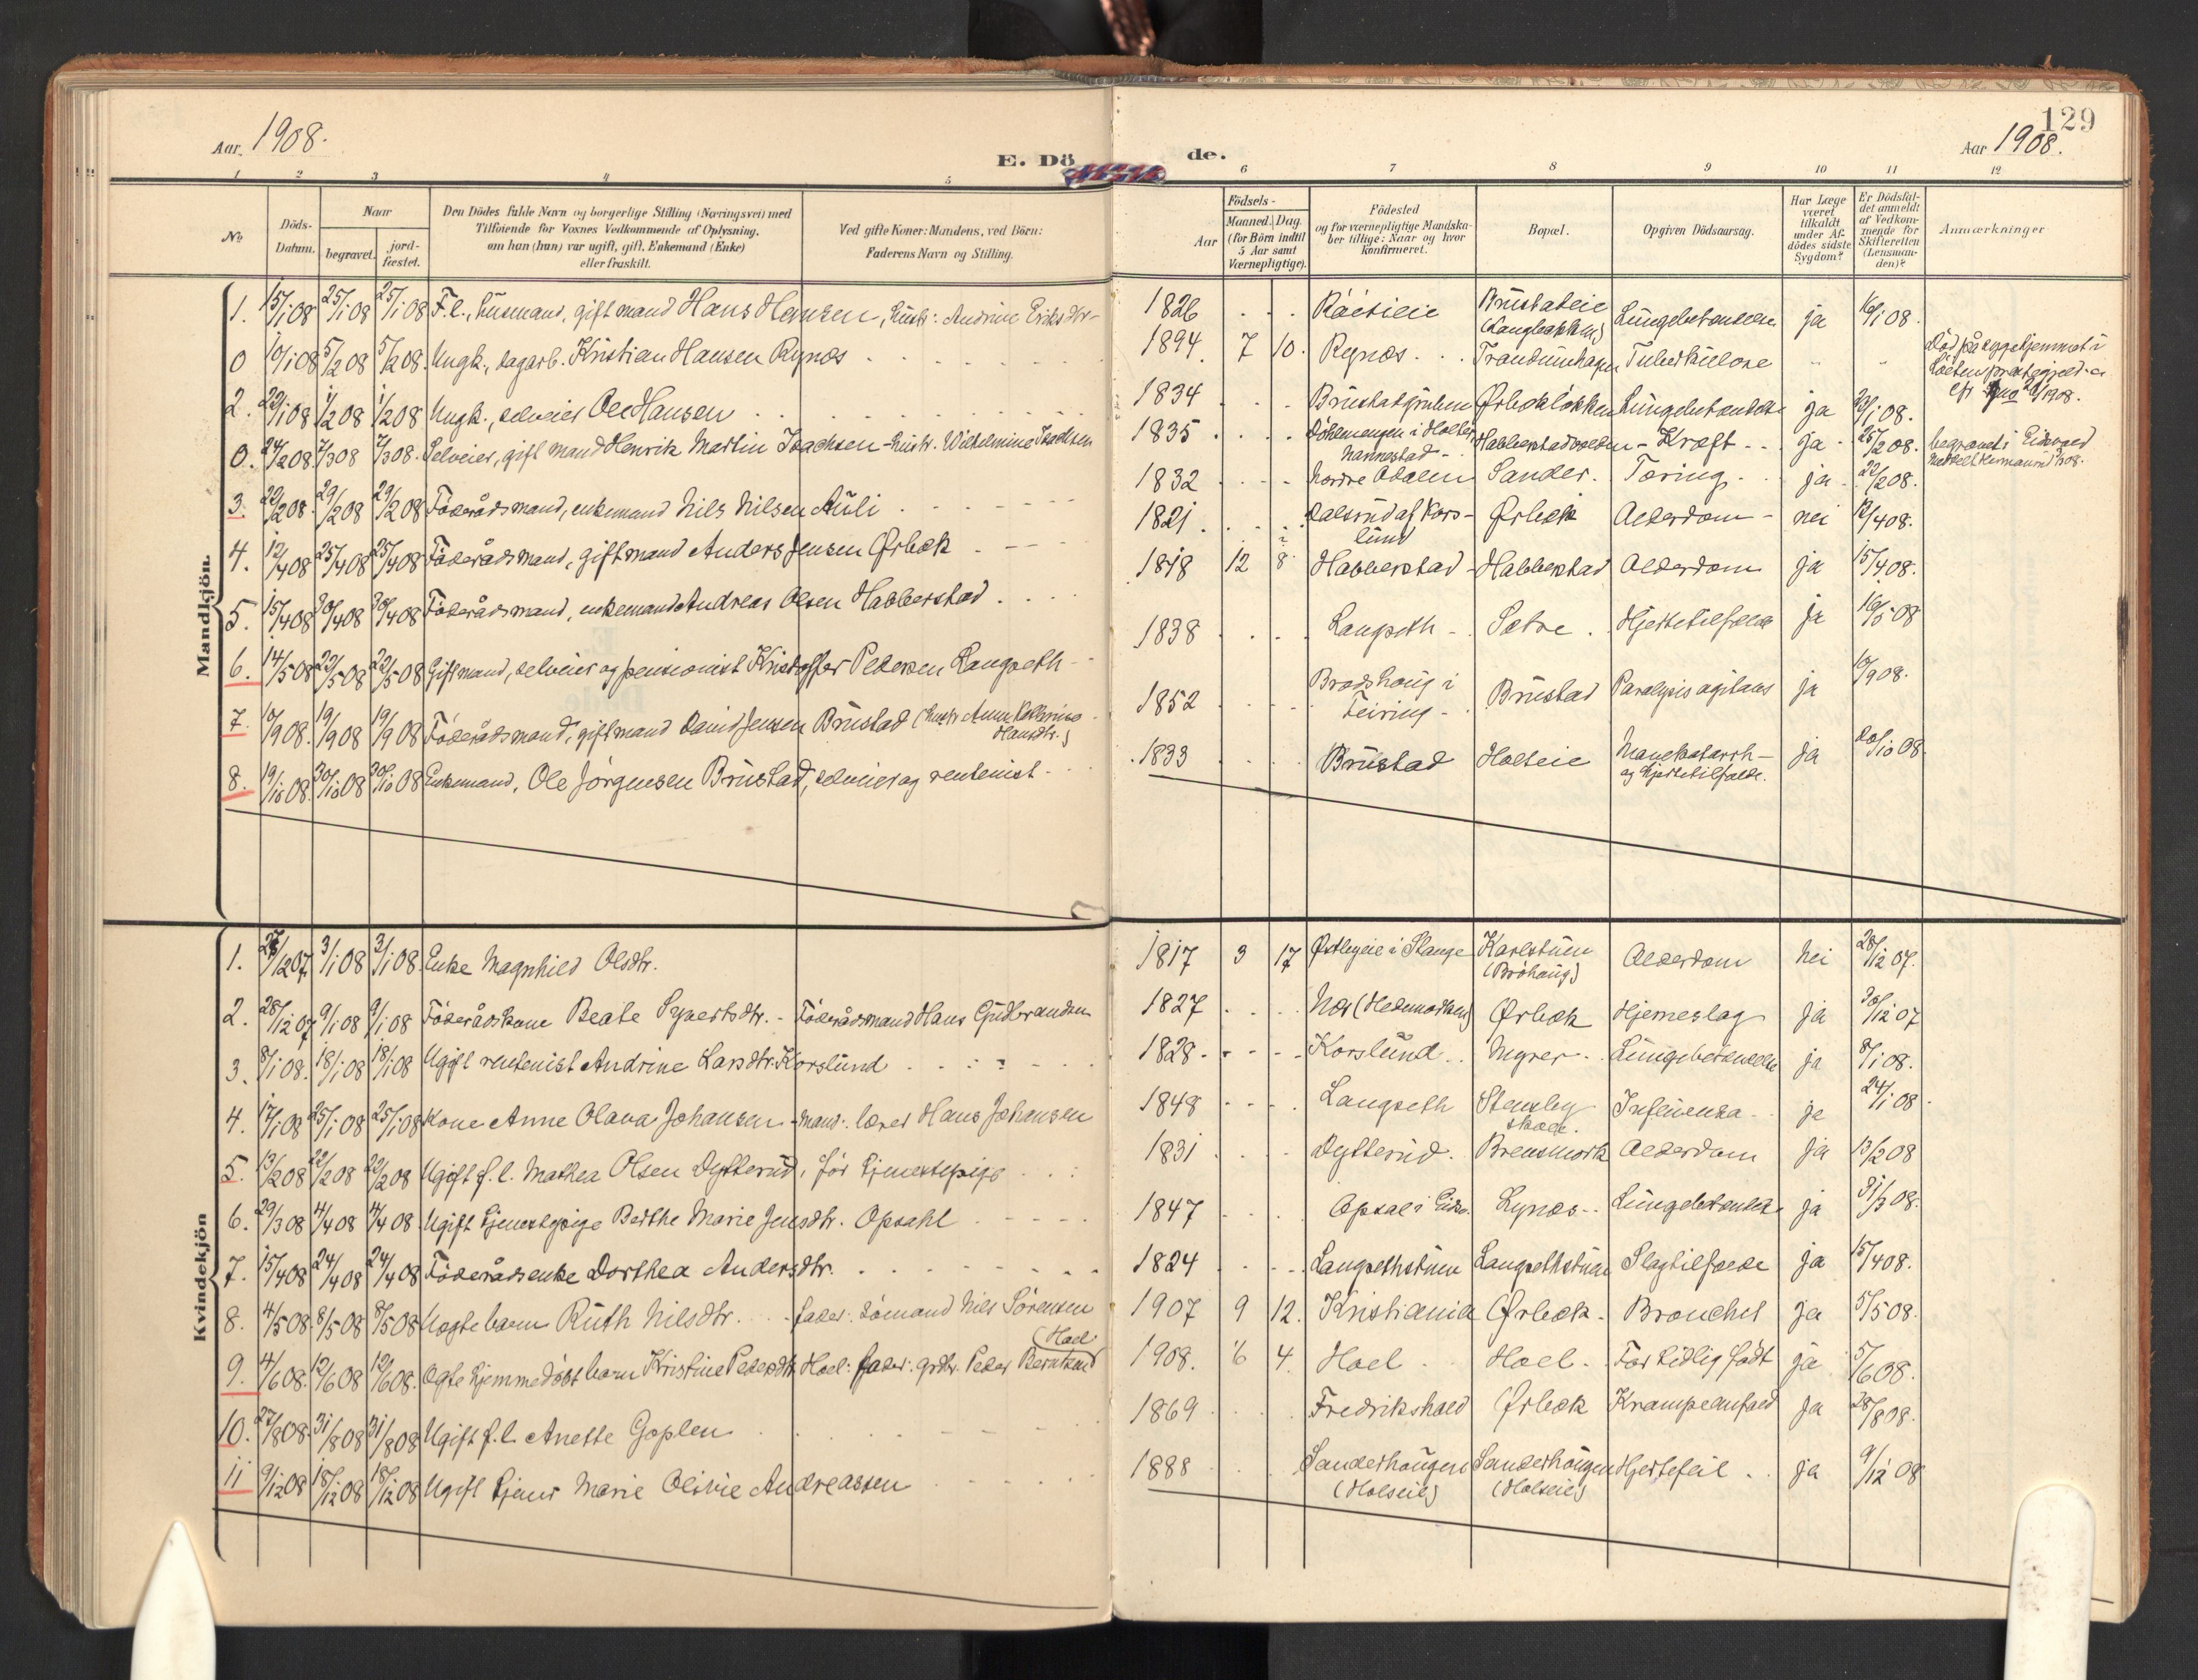 Aar 1908.
E. Dö
de.
129
Aar 1908.
1 2 3 4 5
6 7 8 9 10 11 12
No
Döds-
Datum.
Naar
begravet.
jord-
fæstet.
Den Dödes fulde Navn og borgerlige Stilling (Næringsvei) med
Tilföiende for Voxnes Vedkommende af Oplysning,
om han (hun) var ugift, gift, Enkemand (Enke)
eller fraskilt.
Ved gifte Koner: Mandens, ved Börn:
Faderens Navn og Stilling.
Födsels-
Aar
Maaned.
Dag.
(for Börn indtil
5 Aar samt
Værnepligtige).
Födested
og for værnepligtige Mandska-
ber tillige: Naar og hvor
konfirmeret.
Bopæl.
Opgiven Dödsaarsag.
Har Læge
været
tilkaldt
under Af-
dödes sidste
Sygdom?
Er Dödsfal-
det anmeldt
af Vedkom-
mende for
Skifteretten
(Lensman-
den)?
Anmærkninger
Mandkjön.
1. 15/1 08 25/1 08 25/1 08 F.l., husmand, gift mand Hans Hansen, hustr: Andrine Eriksdtr-
1826 Brustadeie (Langbakken) Lungebetændelse ja 16/1 08.
0 10/1 08 5/2 08 5/2 08. Ungk., dagarb. Kristian Hansen Rynæs
1894. 7 10. Rynæs Trandumhagen Tuberkulose Död på sygehjemmet i
2. 22/1 08 1/2 08 1/2 08 Ungk., selveier Ole Hansen
1834 Ørbækløkken Lungebetændelse ja
0. 24/2 08 7/3 08 7/3 08. Selveier, gift mand Henrik Martin Isachsen - hustr. Wilhelmine Isachsen
1835 i Holter Nannestad - Kræft ja 25/2 08. begravet i Eidsvold
3. 22/2 08. 29/2 08 29/2 08 Föderådsmand, enkemand Nils Nilsen Auli
1832 Nordre Odalen Sander. Tæring ja 22/2 08.
4. 12/4 08 25/4 08 25/4 08 Föderådsmand, gift mand Anders Jensen Ørbæk
1821. Dalsrud af Kors-
lund Ørbæk Alderdom nei 12/4 08.
5. 15/4 08 30/4 08 30/4 08 Föderådsmand, enkemand Andreas Olsen Habberstad
1818 12 8 Habberstad Habberstad Alderdom ja 15/4 08.
6. 14/5 08 22/5 08 22/5 08 Gift mand, selveier og pensionist Kristoffer Pedersen Langseth
1838 Langseth Sætre Hjertetilfælde ja 16/5 08
7. 10/9 08. 19/9 08 19/9 08 Föderådsmand, gift mand David Jensen Brustad (hustr Anne
Hansdtr.)
1852 i
Feiring Brustad Paralysis agitans ja 10/9 08.
8. 19/10 08. 30/10 08 30/10 08 Enkemand, Ole Jörgensen Brustad, selveier og rentenist
1833 Brustad Holseie Mavekatarrh
og hjertetilfælde. ja 20/10 08
Kvindekjön
1. 27/12 07 3/1 08 3/1 08. Enke Magnhild Olsdtr.
1817 3 17 Østbyeie i Stange Karlstuen
(Bröhaug) Alderdom Nei 28/12 07.
2. 28/12 07 9/1 08 9/1 08 Föderådskone Beate Syvertsdtr. - Föderådsmand Hans Gudbrandsen
1827 Næs (Hedemarken) Ørbæk Hjerneslag ja 30/12 07
3. 8/1 08. 18/1 08 18/1 08 Ugift rentenist Andrine Larsdtr. Korslund
1828 Korslund Myrer Lungebetændelse ja 8/1 08.
4. 17/1 08 25/1 08 25/1 08 Kone Anne Olava Johansen - mand: lærer Hans Johansen
1848 Langseth Stensby
skole. Influenza ja 24/1 08
5. 13/2 08 22/2 08 22/2 08 Ugift f.l. Mathea Olsen Dytterud, för tjenestepige
1831 Dytterud. Brensmork Alderdom ja 13/2 08
6. 29/3 08 4/4 08 4/4 08 Ugift tjenestepige Berthe Marie Jensdtr. Opsahl
1847 Opsal i Eidsv. Lynæs Lungebetændelse ja 31/3 08.
7. 15/4 08 24/4 08 24/4 08 Föderådsenke Dorthea Andersdtr.
1824 Langsethstuen Langsethstuen Slagtilfælde ja 15/4 08.
8. 4/5 08. 8/5 08 8/5 08 Uægte barn Ruth Nilsdtr. fader: Sömand Nils Sörensen
1907 9 12. Kristiania Ørbæk Bronchit ja 5/5 08.
9. 4/6 08. 12/6 08 12/6 08. Ægte hjemmedöbt barn Kristine Pedersdtr. Hoel: fader: grdbr. Peder Berntsen
(Hoel
1908. 6 4. Hoel Hoel For tidlig född ja 5/6 08.
10. 27/8 08. 31/8 08 31/8 08 Ugift f.l. Anette Goplen
1869 Fredrikshald Ørbæk Krampeanfald ja 28/8 08.
11 9/12 08 18/12 08 18/12 08 Ugift tjener Marie Olivie Andreassen
1888 Sanderhaugen
(Holseie) Sanderhaugen
(Holseie) Hjertefeil ja 9/12 08